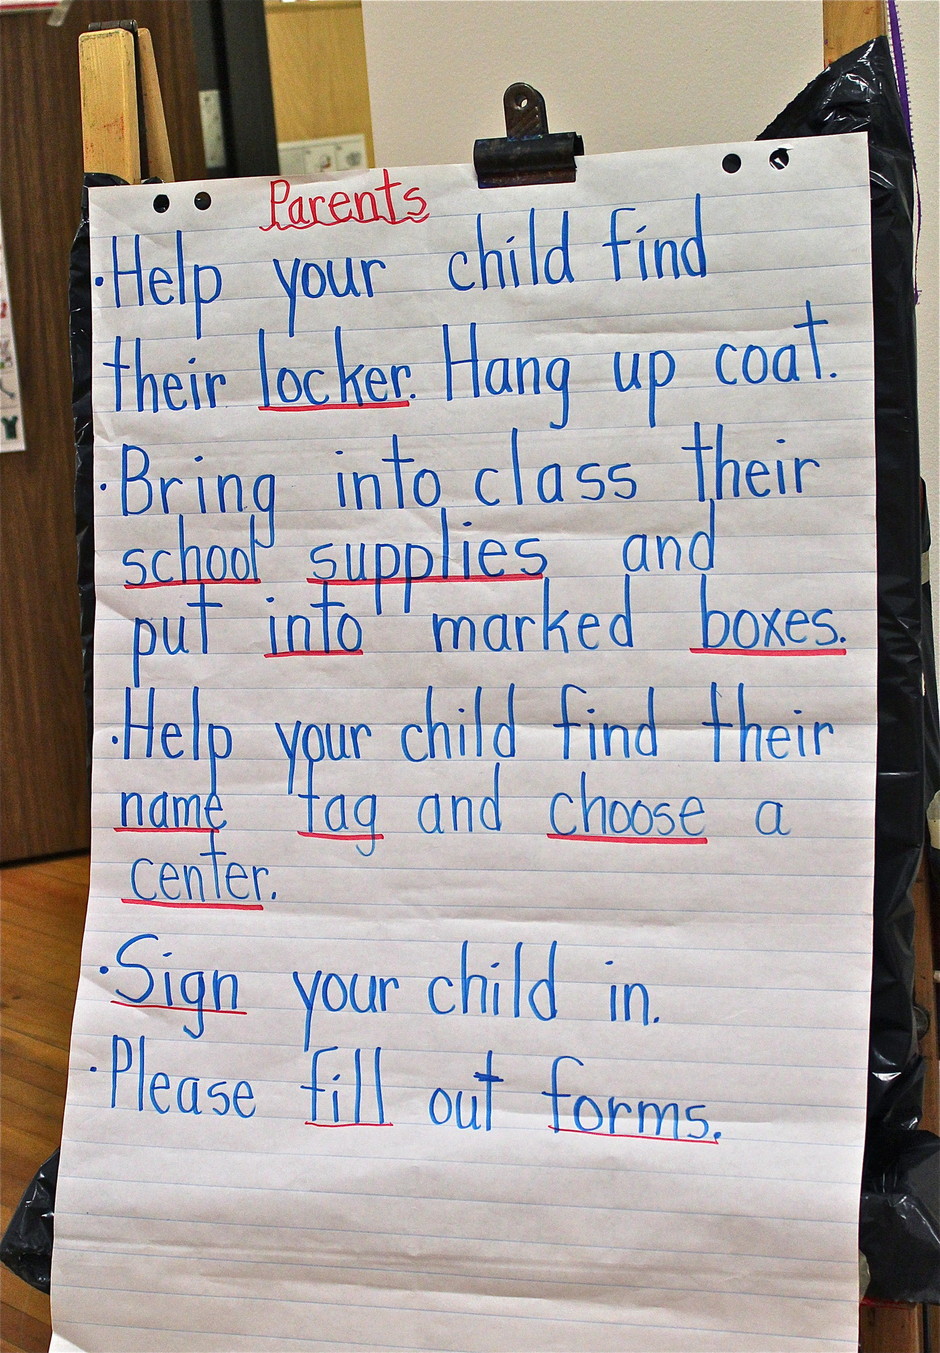 Parents
·Help your child find
their locker. Hang up coat.
·Bring into class their
school supplies and
put into marked boxes.
·Help your child find their
name tag and choose a
center.
·Sign your child in.
·Please fill out forms.